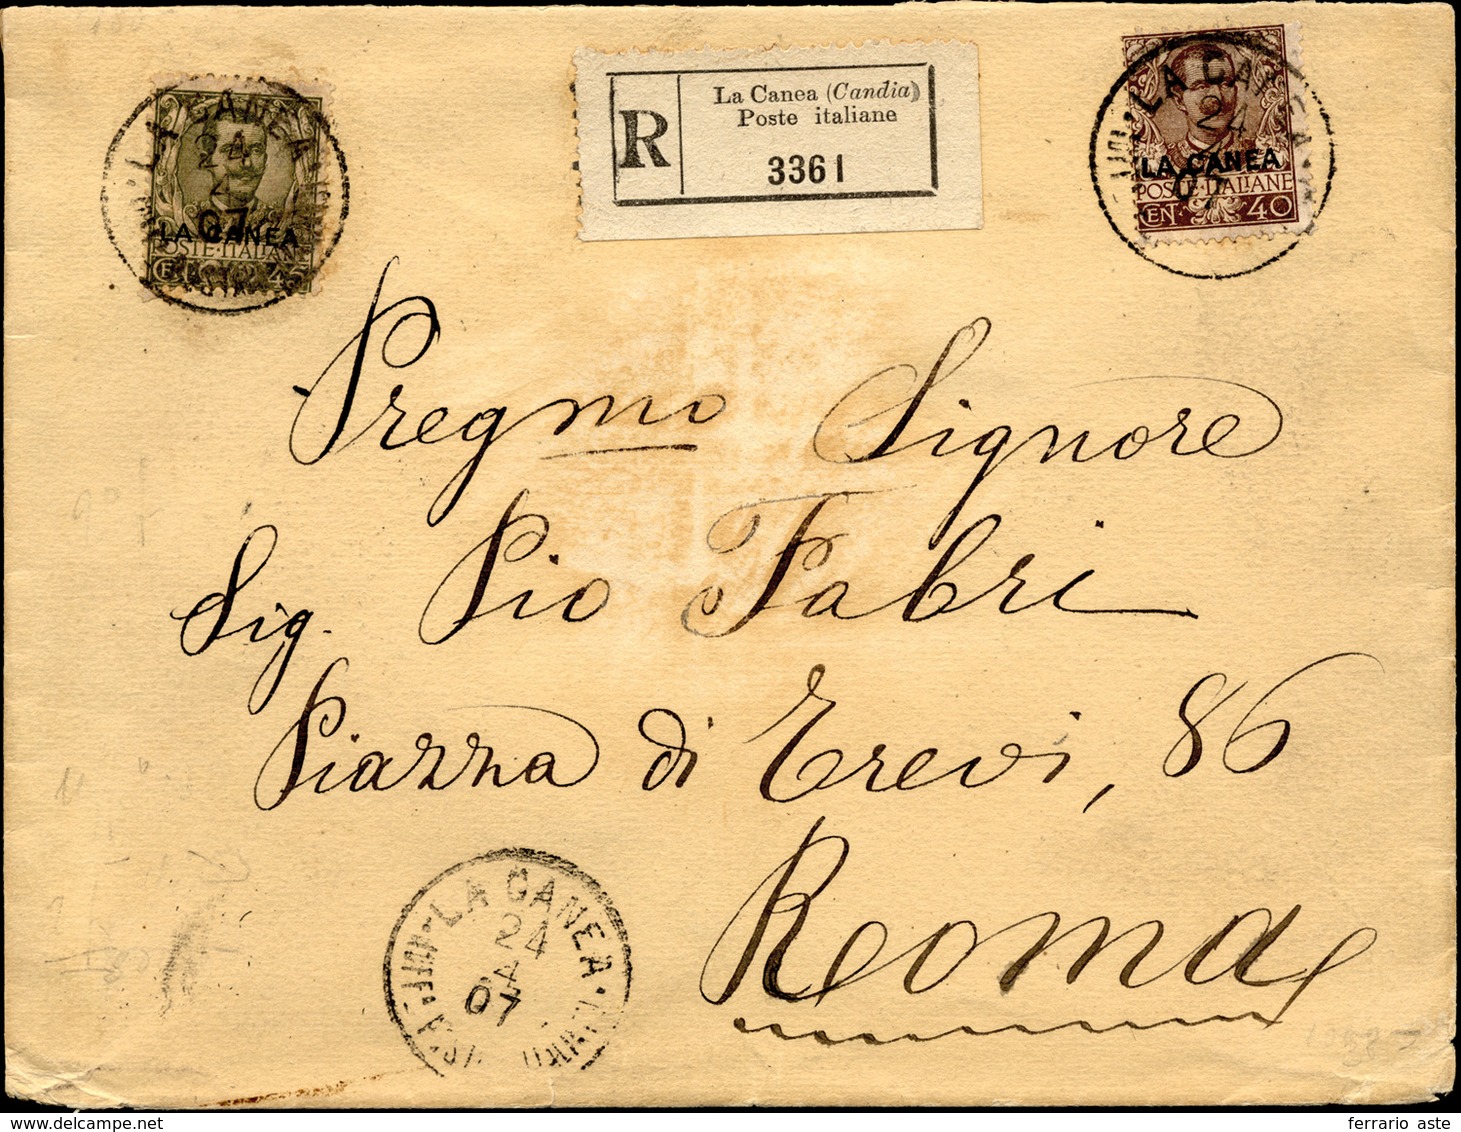 LA CANEA
24
4
07
LA CANEA
POSTE·ITALIANE
CEN. 45
R
La Canea (Candia)
Poste italiane
3361
LA CANEA
24
07
LA CANEA
POSTE·ITALIANE
CEN. 40
Pregmo Signore
Sig. Pio Fabri
Piazza di Trevi, 86
Roma
LA CANEA
24
4
07
ferrario aste